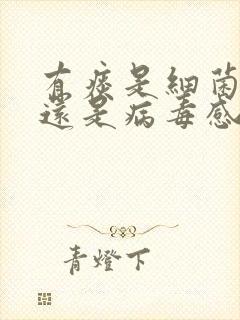 有痰是細菌
還是病毒感
青燈下